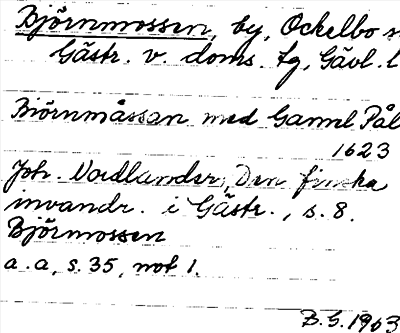 Björnmossen, by, Ockelbo s
Gästr. v. doms. tg, Gävl. l
Biörnmåssan med Gaml Pål
1623
Joh. Nordlander, Den finska
invandr. i Gästr., s. 8.
Björmossen
a. a, s. 35, not 1.
B. G. 1963